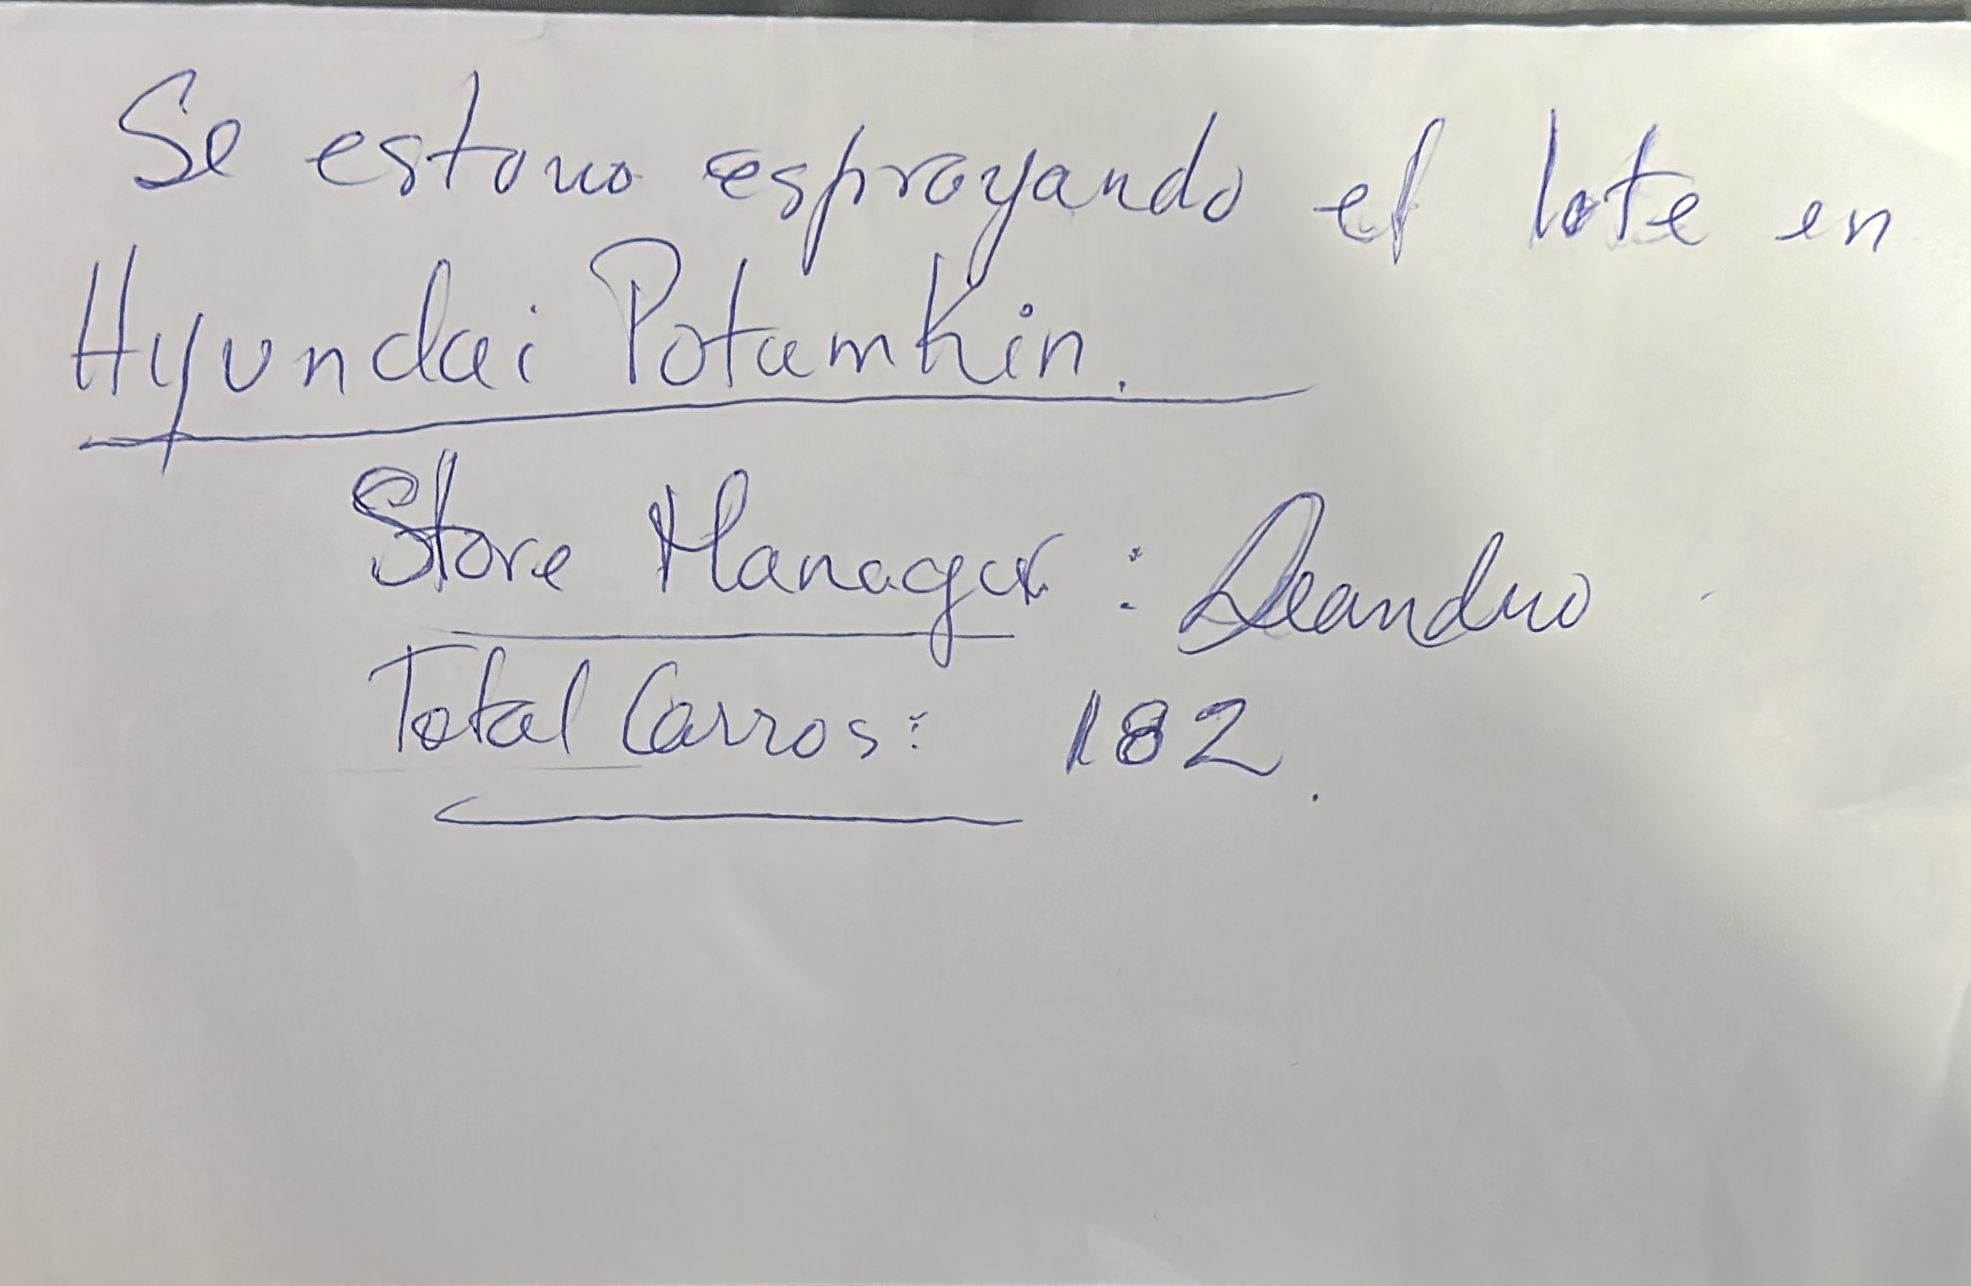 Se estovo esprayando el lote en
Hyundai Potamkin.
Store Manager : Leandro
Total Carros: 182.